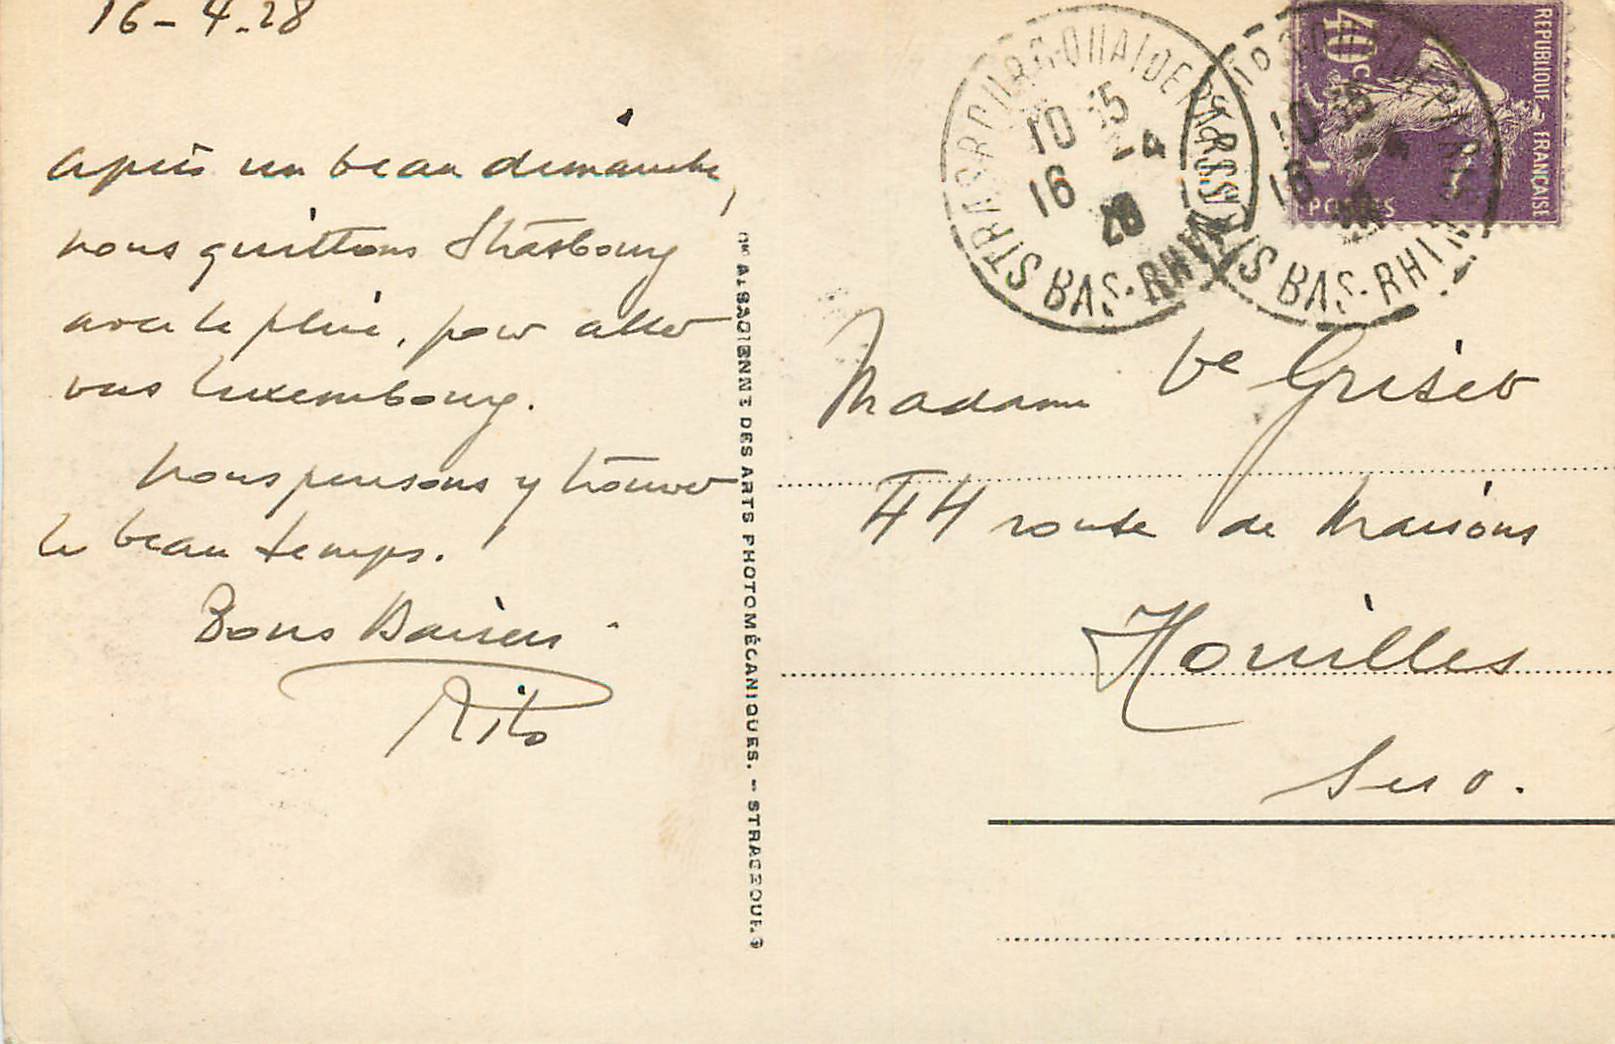 16-4.28
après un beau dimanche,
nous quittons Strasbourg
avec la pluie, pour aller
vers Luxembourg.
Nous pensons y trouver
le beau temps.
Bons Baisers
Cie ALSACIENNE DES ARTS PHOTOMÉCANIQUES. - STRASBOURG
STRASBOURG-QUAI DE PARIS BAS-RHIN
10 35
16 -4
28
10 35
16 -4
28
BAS-RHIN
40c
REPUBLIQUE FRANÇAISE
POSTES
Madame Ve Griset
44 route de Maisons
Houilles
S et O.